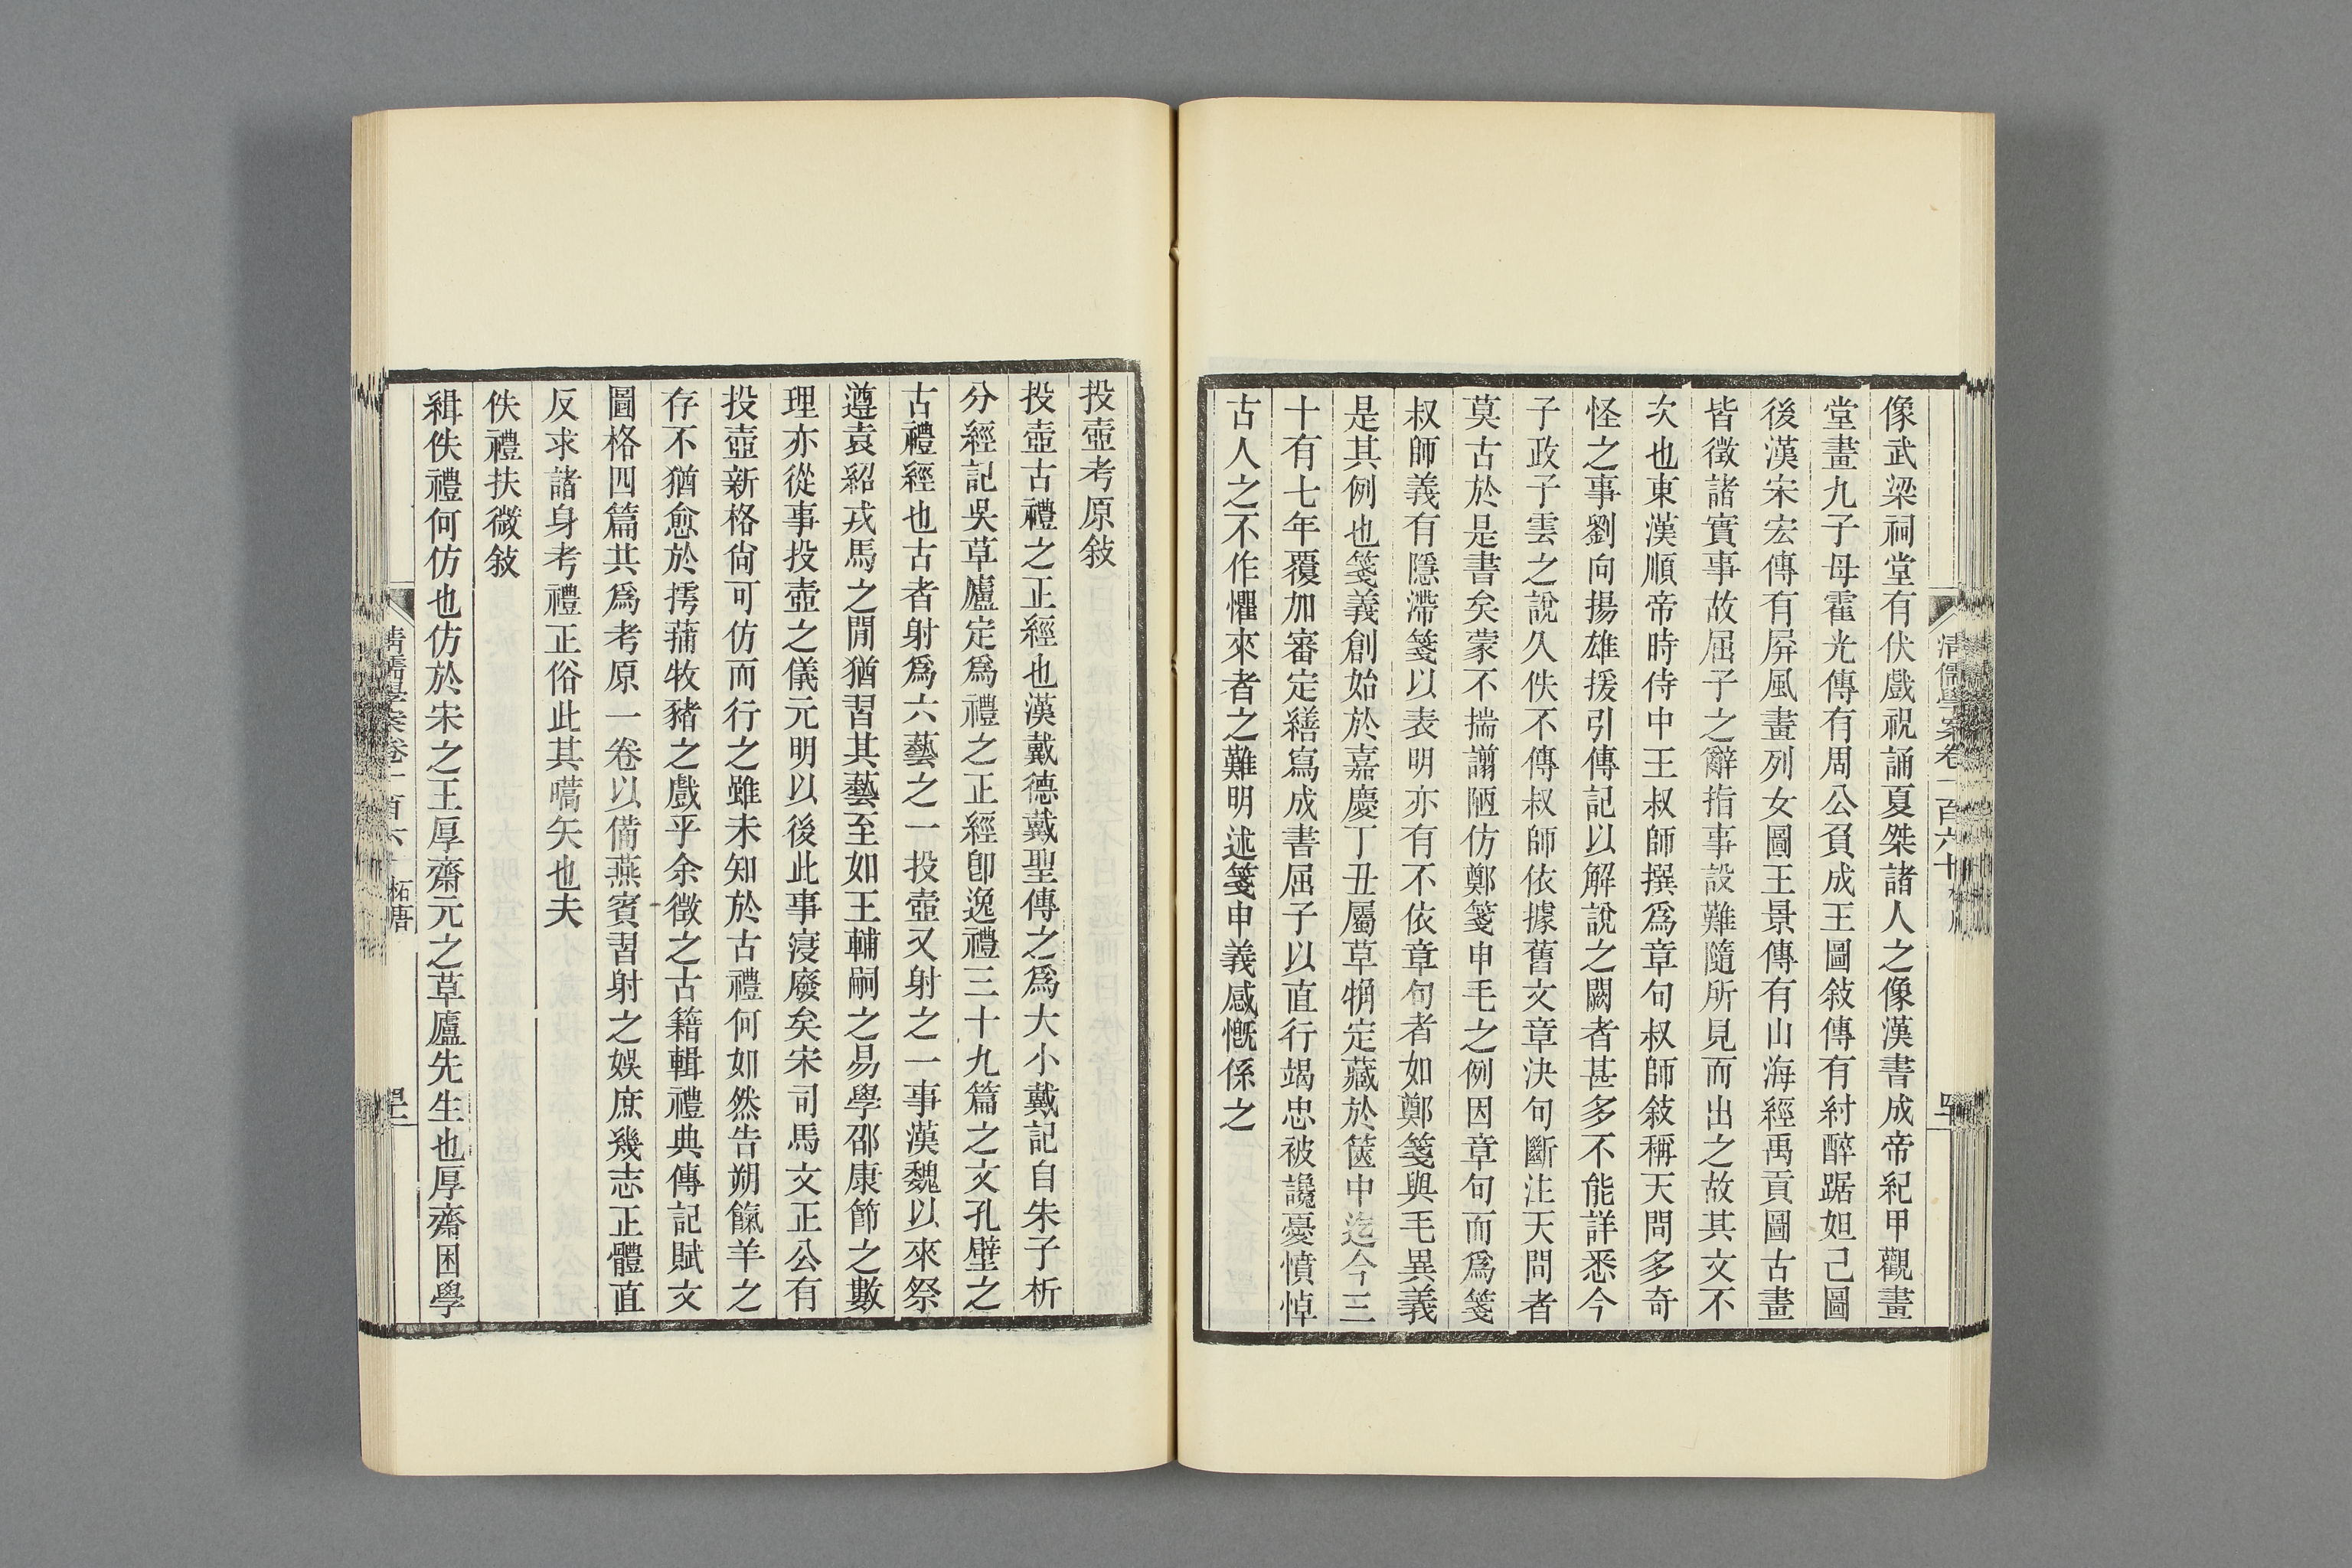 像武梁祠堂有伏戲祝誦夏桀諸人之像漢書成帝紀甲觀畫
堂畫九子母霍光傳有周公負成王圖敍傳有紂醉踞妲己圖
後漢宋宏傳有屏風畫列女圖王景傳有山海經禹貢圖古畫
皆徵諸實事故屈子之辭指事設難隨所見而出之故其文不
次也東漢順帝時侍中王叔師撰爲章句叔師敍稱天問多奇
怪之事劉向揚雄援引傳記以解說之闕者甚多不能詳悉今
子政子雲之說久佚不傳叔師依據舊文章決句斷注天問者
莫古於是書矣蒙不揣譾陋仿鄭箋申毛之例因章句而爲箋
叔師義有隱滯箋以表明亦有不依章句者如鄭箋與毛異義
是其例也箋義創始於嘉慶丁丑屬草觕定藏於篋中迄今三
十有七年覆加審定繕寫成書屈子以直行竭忠被讒憂憤悼
古人之不作懼來者之難明述箋申義感慨係之
投壺考原敍
投壺古禮之正經也漢戴德戴聖傳之爲大小戴記自朱子析
分經記吳草廬定爲禮之正經卽逸禮三十九篇之文孔壁之
古禮經也古者射爲六藝之一投壺又射之一事漢魏以來祭
遵袁紹戎馬之閒猶習其藝至如王輔嗣之易學邵康節之數
理亦從事投壺之儀元明以後此事寖廢矣宋司馬文正公有
投壺新格尙可仿而行之雖未知於古禮何如然告朔餼羊之
存不猶愈於摴蒱牧豬之戲乎余徵之古籍輯禮典傳記賦文
圖格四篇其爲考原一卷以備燕賓習射之娛庶幾志正體直
反求諸身考禮正俗此其嚆矢也夫
佚禮扶微敍
緝佚禮何仿也仿於宋之王厚齋元之草廬先生也厚齋困學
清儒學案卷一百六十
柘唐